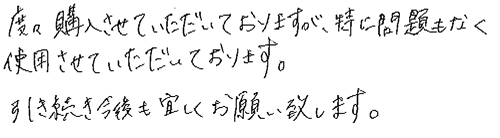 度々購入させていただいておりますが、特に問題もなく
使用させていただいております。
引き続き今後も宜しくお願い致します。